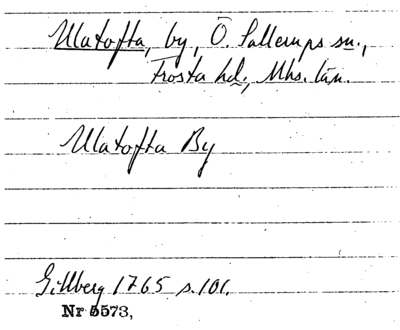 Ulatofta, by, Ö. Sallerups sn.,
Frosta hd, Mhs. län.
Ulatofta By
Gillberg 1765 s. 101.
Nr 5573,